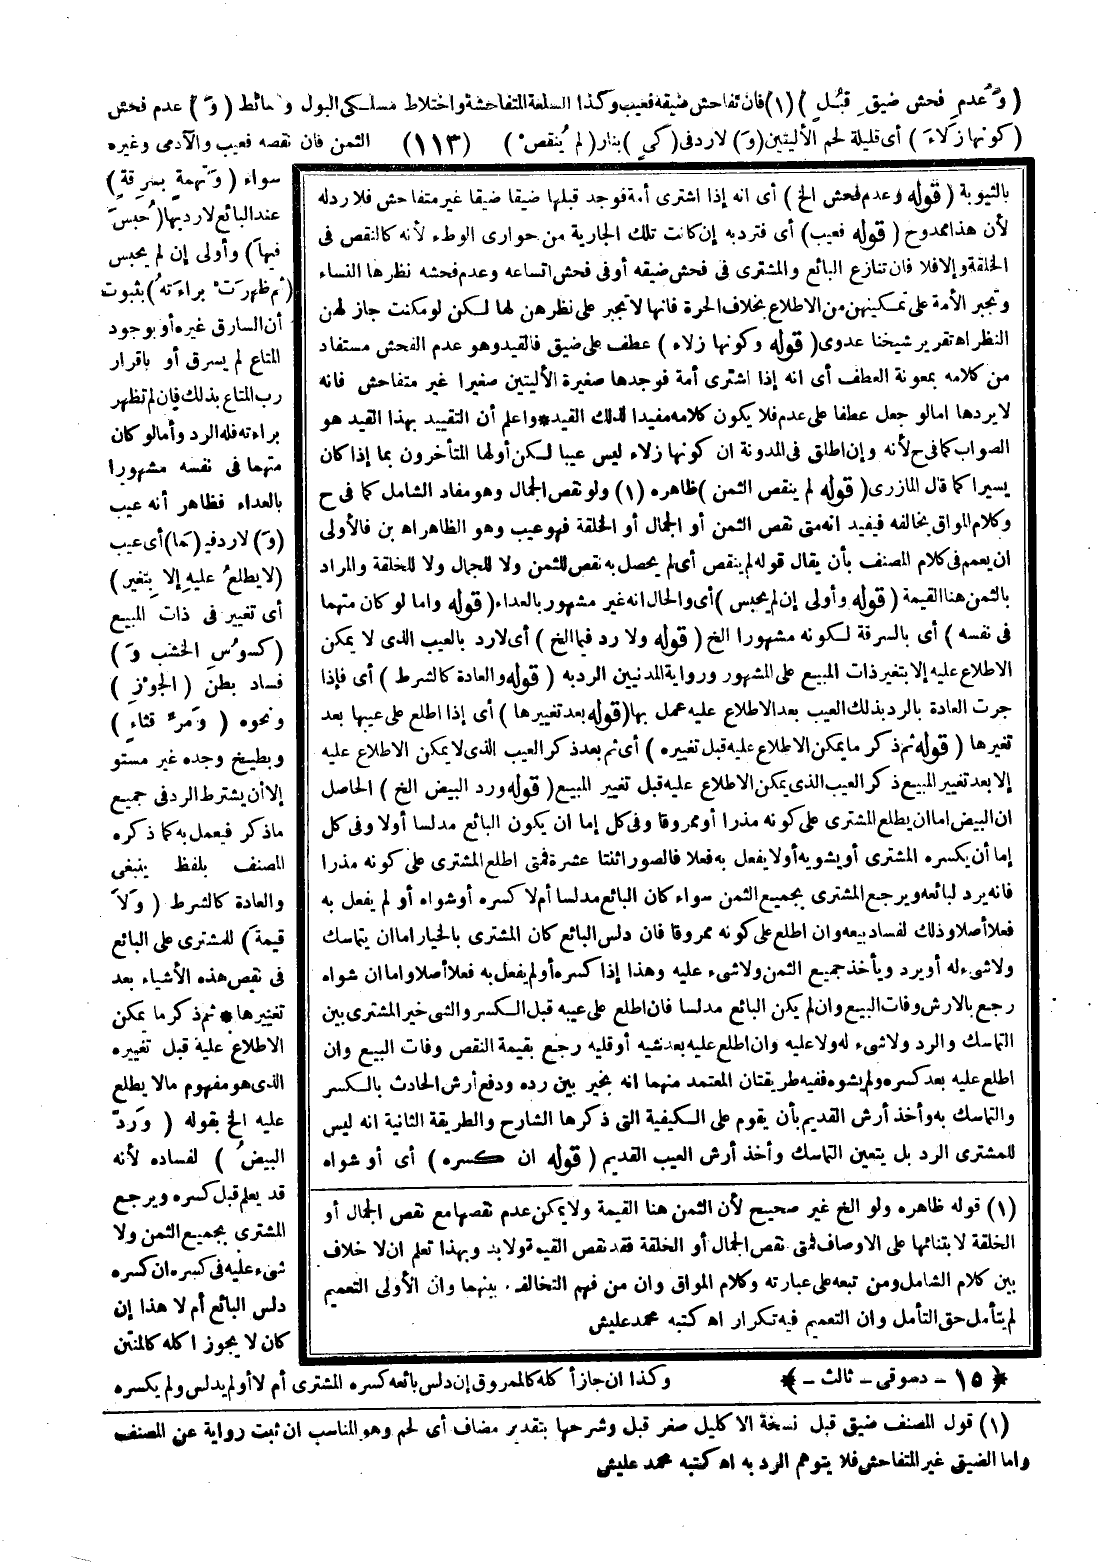 ( وَ ) عدم فحش ضيق قُبُلٍ ) (١) فان تفاحش ضيقه فعيب وكذا السلعة المتفاحشة واختلاط مسلكى البول و ـائط ( وَ ) عدم فحش
( كونها زلاءَ ) أى قليلة لحم الأليتين (وَ) لا رد فى (كيٍ) بنار (لم يُنقص ) (١١٣) الثمن فان نقصه فعيب والآدمى وغيره
سواء ( وَتهمةٍ بسرقةٍ )
عند البائع لا رد بها (حُبسَ
فيها) وأولى إن لم يحبس
(ثم ظهرَت براءَتُه) بثبوت
أن السارق غيره أو بوجود
المتاع لم يسرق أو باقرار
رب المتاع بذلك فإن لم تظهر
براءته فله الرد وأما لو كان
متهما فى نفسه مشهورا
بالعداء فظاهر أنه عيب
(وَ) لا رد فى (مَا) أى عيب
(لا يطلعُ عليهِ إلا بتغيرٍ)
أى تغيير فى ذات المبيع
(كسُوسِ الخشب وَ)
فساد بطن (الجوْزِ)
ونحوه ( وَمرِّ قثاءٍ )
وبطيخ وجده غير مستو
إلا أن يشترط الرد فى جميع
ماذكر فيعمل به كما ذكره
المصنف بلفظ ينبغى
والعادة كالشرط ( وَلاَ
قيمةَ) للمشترى على البائع
فى نقص هذه الأشياء بعد
تغييرها * ثم ذكر ما يمكن
الاطلاع عليه قبل تغييره
الذى هو مفهوم مالا يطلع
عليه الخ بقوله ( وَرُدّ
البيضُ ) لفساده لأنه
قد يعلم قبل كسره ويرجع
المشترى بجميع الثمن ولا
شىء عليه فى كسره ان كسره
دلس البائع أم لا هذا إن
كان لا يجوز اكله كالمنتن
بالثيوبة ( قوله وعدم فحش الخ ) أى انه إذا اشترى أمة فوجد قبلها ضيقا ضيقا غير متفاحش فلا رد له
لأن هذا ممدوح ( قوله فعيب) أى فترد به إن كانت تلك الجارية من جوارى الوطء لأنه كالنقص فى
الخلقة وإلا فلا فان تنازع البائع والمشترى فى فحش ضيقه أو فى فحش اتساعه وعدم فحشه نظرها النساء
وتجبر الأمة على تمكينهن من الاطلاع بخلاف الحرة فانها لا تجبر على نظرهن لها لكن لو مكنت جاز لهن
النظر اه تقرير شيخنا عدوى ( قوله وكونها زلاء ) عطف على ضيق فالقيد وهو عدم الفحش مستفاد
من كلامه بمعونة العطف أى انه إذا اشترى أمة فوجدها صغيرة الأليتين صغيرا غير متفاحش فانه
لا يردها اما لو جعل عطفا على عدم فلا يكون كلامه مفيدا لذلك القيد * واعلم أن التقييد بهذا القيد هو
الصواب كما فى ح لأنه وإن اطلق فى المدونة ان كونها زلاء ليس عيبا لكن أولها المتأخرون بما إذا كان
يسيرا كما قال المازرى ( قوله لم ينقص الثمن ) ظاهره (١) ولو نقص الجمال وهو مفاد الشامل كما فى ح
وكلام المواق يخالفه فيفيد انه متى نقص الثمن أو الجمال أو الخلقة فهو عيب وهو الظاهر اه بن فالأولى
ان يعمم فى كلام المصنف بأن يقال قوله لم ينقص أى لم يحصل به نقص للثمن ولا للجمال ولا للخلقة والمراد
بالثمن هنا القيمة ( قوله وأولى إن لم يحبس ) أى والحال انه غير مشهور بالعداء ( قوله واما لو كان متهما
فى نفسه ) أى بالسرقة لكونه مشهورا الخ ( قوله ولا رد فيما الخ ) أى لا رد بالعيب الذى لا يمكن
الاطلاع عليه إلا بتغير ذات المبيع على المشهور ورواية المدنيين الرد به ( قوله والعادة كالشرط ) أى فإذا
جرت العادة بالرد بذلك العيب بعد الاطلاع عليه عمل بها ( قوله بعد تغييرها ) أى إذا اطلع على عيبها بعد
تغيرها ( قوله ثم ذكر ما يمكن الاطلاع عليه قبل تغيره ) أى ثم بعد ذكر العيب الذى لا يمكن الاطلاع عليه
إلا بعد تغيير المبيع ذكر العيب الذى يمكن الاطلاع عليه قبل تغيير المبيع ( قوله ورد البيض الخ ) الحاصل
ان البيض اما ان يطلع المشترى على كونه مذرا أو ممروقا وفى كل إما ان يكون البائع مدلسا أولا وفى كل
إما أن يكسره المشترى أو يشويه أولا يفعل به فعلا فالصور اثنتا عشرة فمتى اطلع المشترى على كونه مذرا
فانه يرد لبائعه ويرجع المشترى بجميع الثمن سواء كان البائع مدلسا أم لا كسره أو شواه أو لم يفعل به
فعلا أصلا وذلك لفساد بيعه وان اطلع على كونه ممروقا فان دلس البائع كان المشترى بالخيار اما ان يتماسك
ولا شىء له أو يرد ويأخذ جميع الثمن ولا شىء عليه وهذا إذا كسره أو لم يفعل به فعلا أصلا واما ان شواه
رجع بالارش وفات البيع وان لم يكن البائع مدلسا فان اطلع على عيبه قبل الكسر والشى خير المشترى بين
التماسك والرد ولا شىء له ولا عليه وان اطلع عليه بعد شيه أو قليه رجع بقيمة النقص وفات البيع وان
اطلع عليه بعد كسره ولم يشوه ففيه طريقتان المعتمد منهما انه يخير بين رده ودفع أرش الحادث بالكسر
والتماسك به وأخذ أرش القديم بأن يقوم على الكيفية التى ذكرها الشارح والطريقة الثانية انه ليس
للمشترى الرد بل يتعين التماسك وأخذ أرش العيب القديم ( قوله ان كسره ) أى أو شواه
(١) قوله ظاهره ولو الخ غير صحيح لأن الثمن هنا القيمة ولا يمكن عدم نقصها مع نقص الجمال أو
الخلقة لابتنائها على الاوصاف فمتى نقص الجمال أو الخلقة فقد نقص القيمة ولا بد وبهذا تعلم ان لا خلاف
بين كلام الشامل ومن تبعه على عبارته وكلام المواق وان من فهم التخالف بينهما وان الأولى التعميم
لم يتأمل حق التأمل وان التعميم فيه تكرار اه كتبه محمد عليش
وكذا ان جاز أكله كالممروق إن دلس بائعه كسره المشترى أم لا أو لم يدلس ولم يكسره
﴿ ١٥ - دسوقى - ثالث - ﴾
(١) قول المصنف ضيق قبل نسخة الاكليل صغر قبل وشرحها بتقدير مضاف أى لحم وهو المناسب ان ثبت رواية عن المصنف
واما الضيق غير المتفاحش فلا يتوهم الرد به اه كتبه محمد عليش